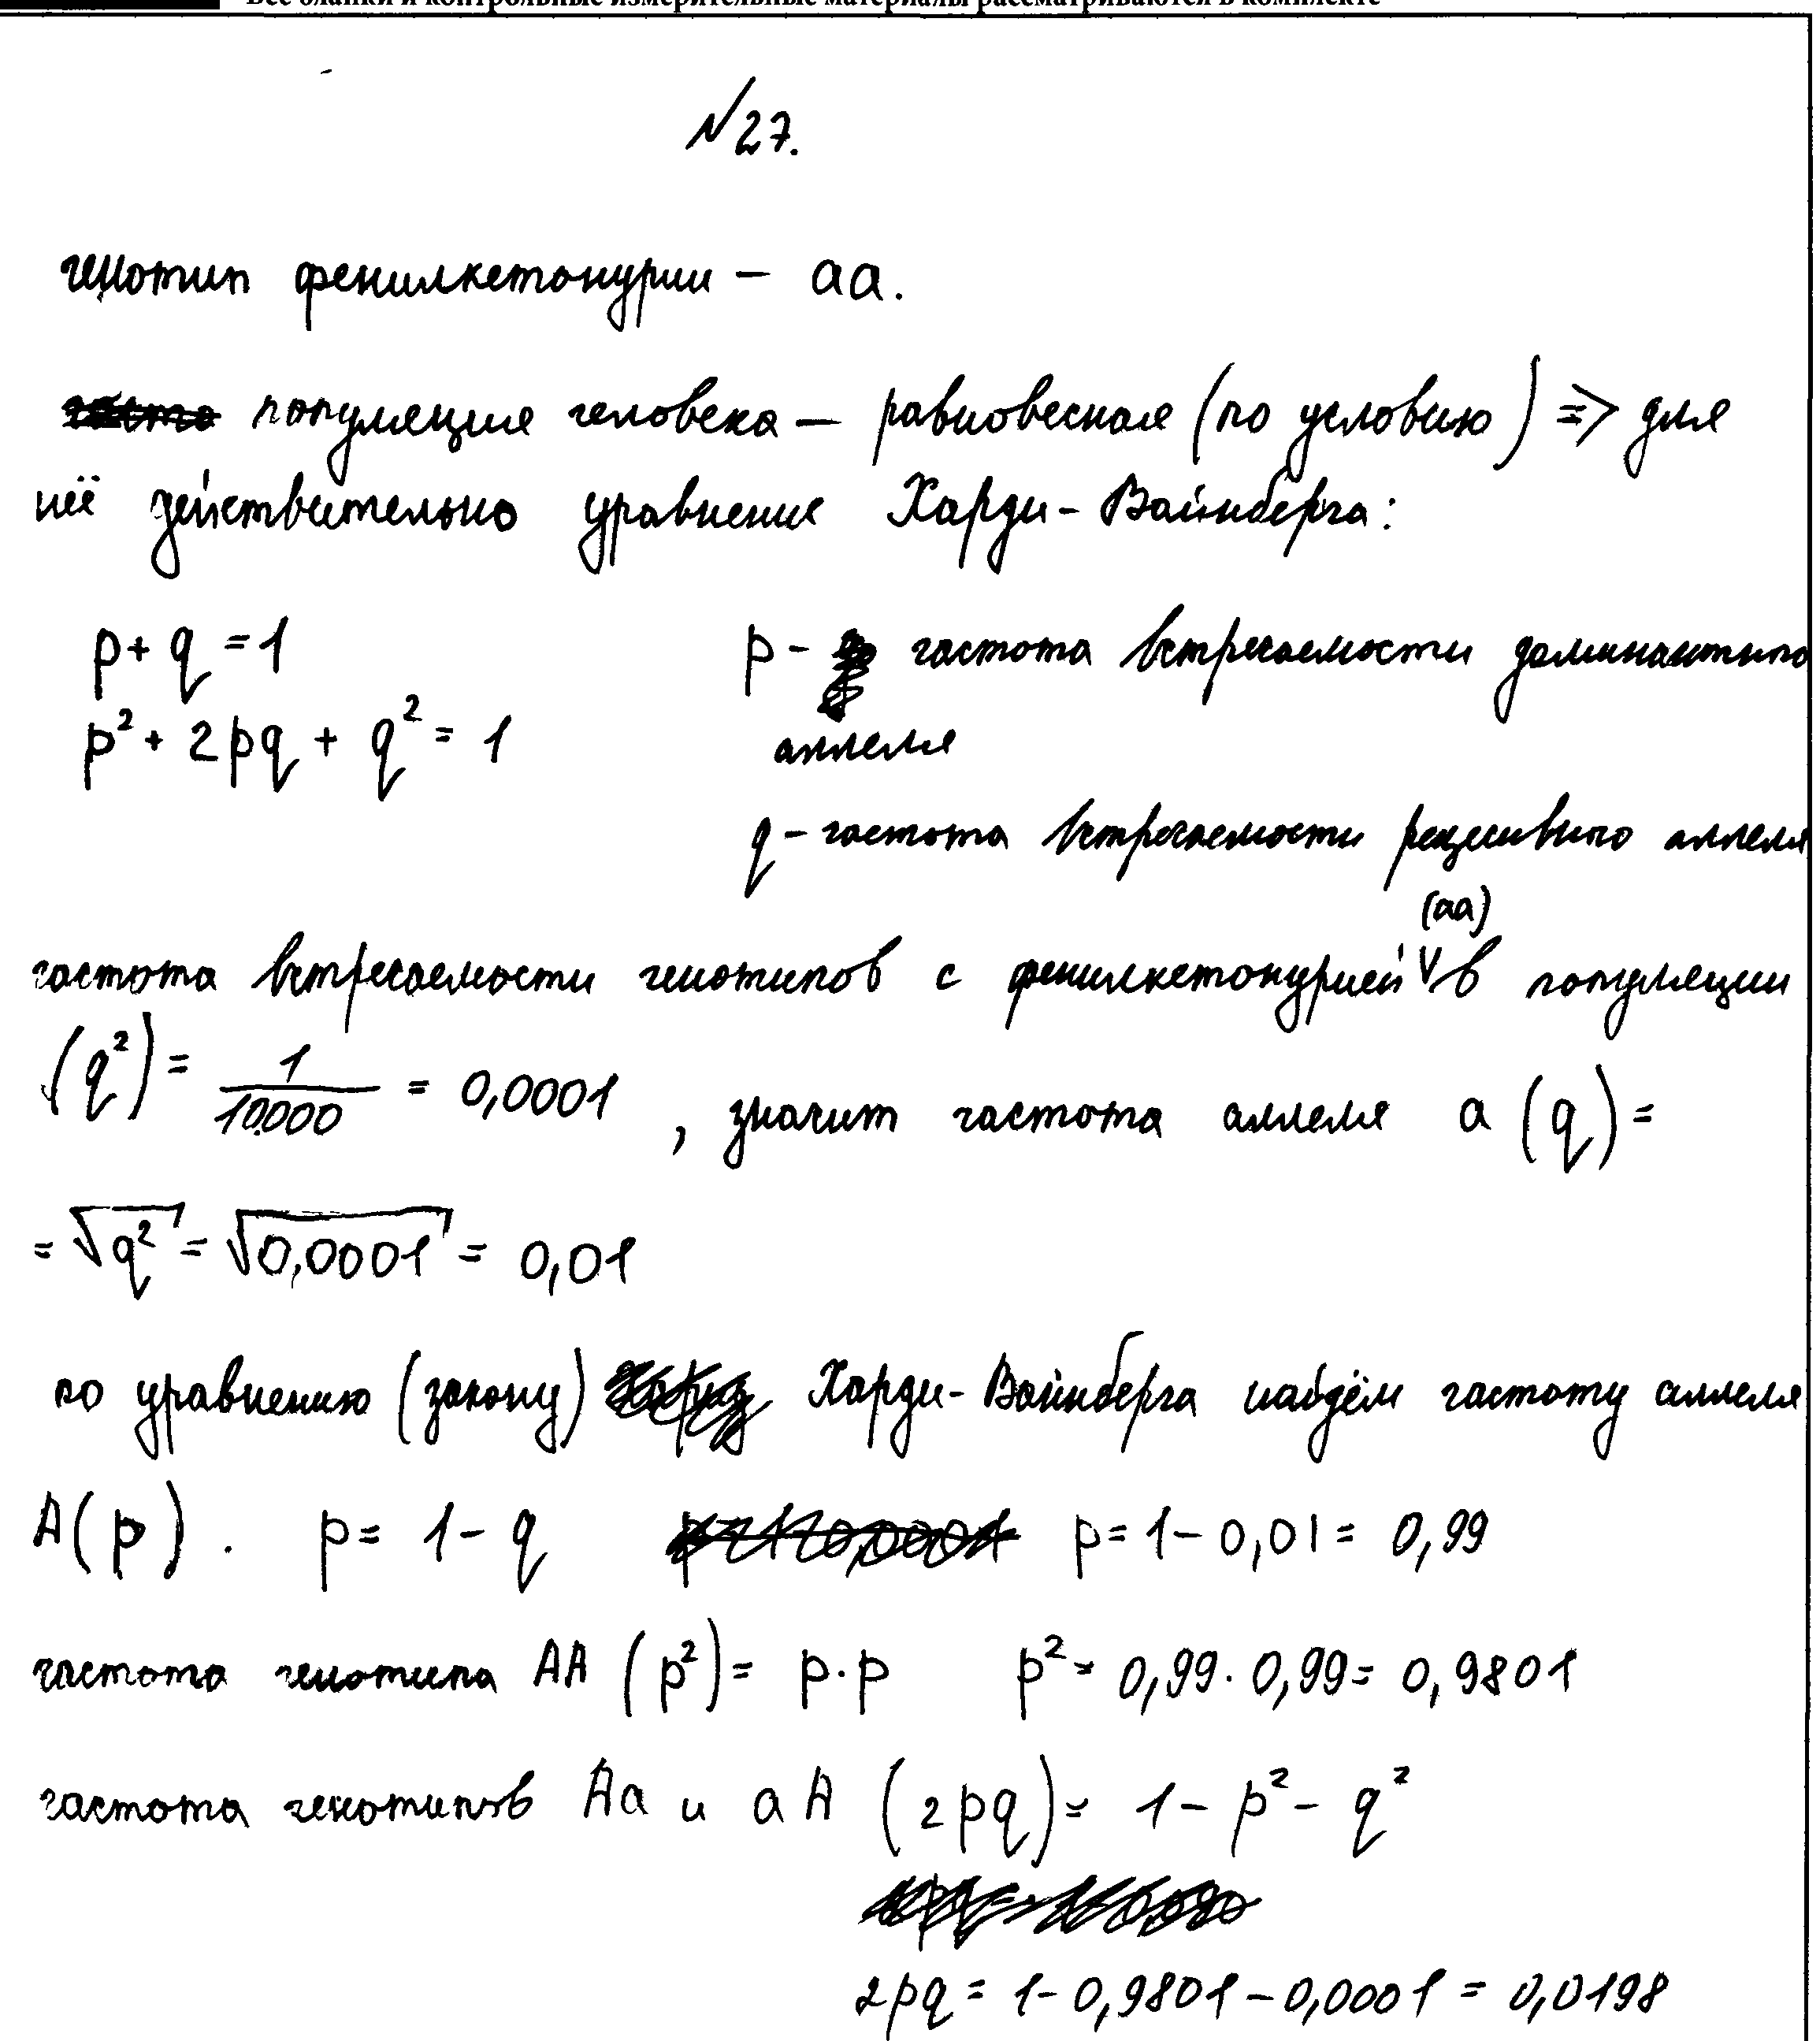 Все бланки и контрольные измерительные материалы рассматриваются в комплекте
№27.
генотип фенилкетонурии – аа.
популяция человека – равновесная (по условию) => для
неё действительно уравнение Харди-Вайнберга:
p + q = 1 p - частота встречаемости доминантного
p² + 2pq + q² = 1 аллеля
q - частота встречаемости рецессивного аллеля
(аа)
частота встречаемости генотипов с фенилкетонурией V в популяции
(q²) = 1/10000 = 0,0001 , значит частота аллеля а (q) =
= √q² = √0,0001 = 0,01
по уравнению (закону) Харди-Вайнберга найдём частоту аллеля
А(p). p = 1 - q p = 1 - 0,01 = 0,99
частота генотипа АА (p²) = p·p p² = 0,99·0,99 = 0,9801
частота генотипов Аа и аА (2pq) = 1 - p² - q²
2pq = 1 - 0,9801 - 0,0001 = 0,0198